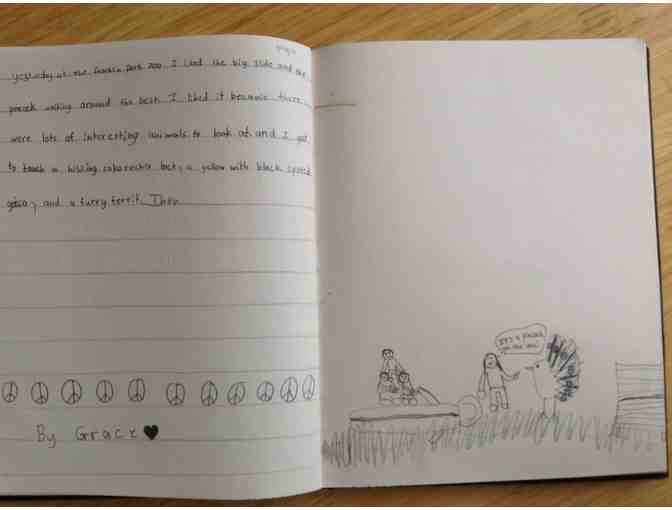 yesterday at the Franklin Park zoo I liked the big slide and the
pacock walking around the best. I liked it because there
were lots of interesting animals to look at and I got
to touch a hissing cakorochr back, a yellow with black spoted
geico, and a furry ferrit. Then
It's a pacock
By Grace